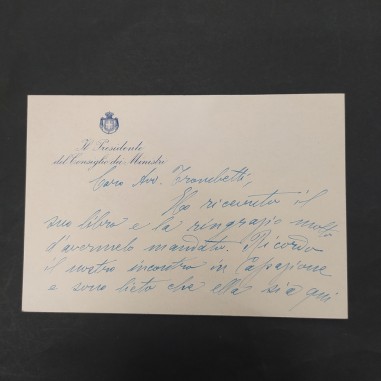 Il Presidente
del Consiglio dei Ministri
Caro Avv. Trombetti,
Ho ricevuto il
suo libro e la ringrazio molto
d'avermelo mandato. Ricordo
il nostro incontro in Cassazione
e sono lieto che ella sia qui